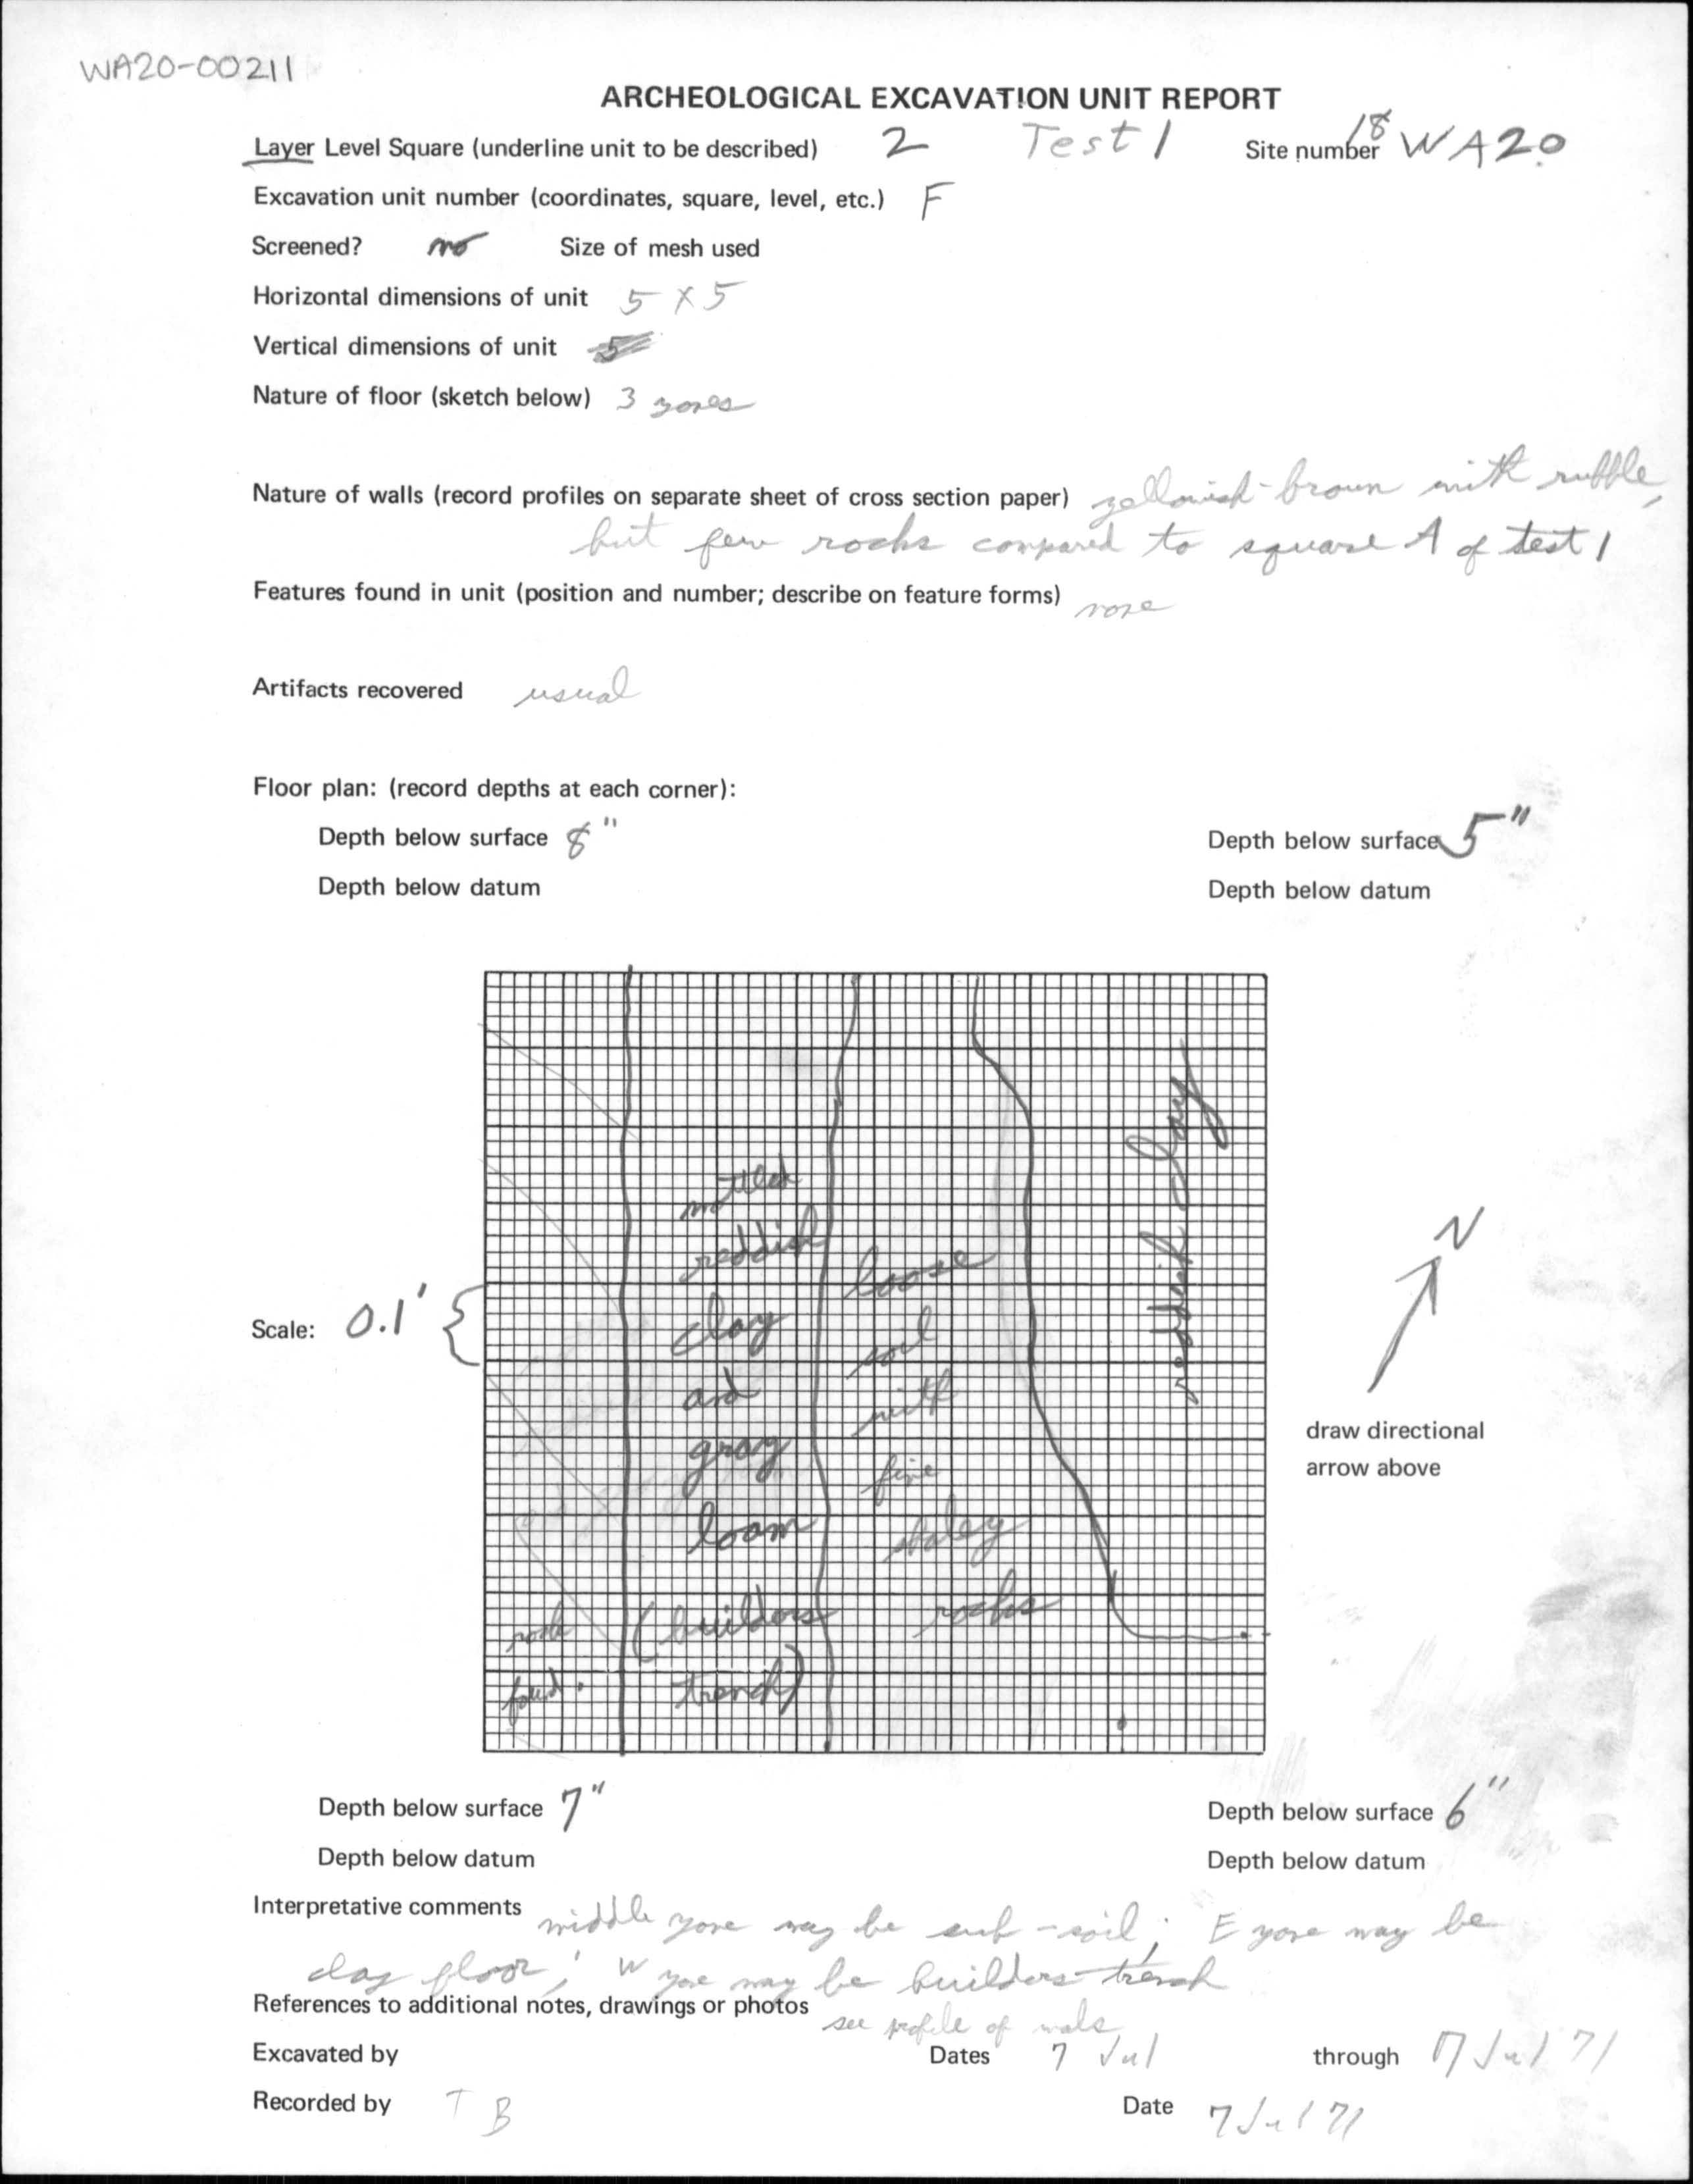 WA20-00211
ARCHEOLOGICAL EXCAVATION UNIT REPORT
Layer Level Square (underline unit to be described) 2 Test 1 Site number 18 WA20
Excavation unit number (coordinates, square, level, etc.) F
Screened? no Size of mesh used
Horizontal dimensions of unit 5 X 5
Vertical dimensions of unit 5
Nature of floor (sketch below) 3 zones
Nature of walls (record profiles on separate sheet of cross section paper) yellowish-brown with rubble,
but few rocks compared to square A of test 1
Features found in unit (position and number; describe on feature forms) none
Artifacts recovered usual
Floor plan: (record depths at each corner):
Depth below surface 8" Depth below surface 5"
Depth below datum Depth below datum
mottled
reddish
clay
and
gray
loam
(builders
trench)
loose
soil
with
fine
shaley
rocks
reddish clay
rock
found.
Scale: 0.1'
N
draw directional
arrow above
Depth below surface 7" Depth below surface 6"
Depth below datum Depth below datum
Interpretative comments middle zone may be sub-soil; E zone may be
clay floor; W zone may be builders trench
References to additional notes, drawings or photos see profile of walls
Excavated by Dates 7 Jul through 7 Jul 71
Recorded by T B Date 7 Jul 71